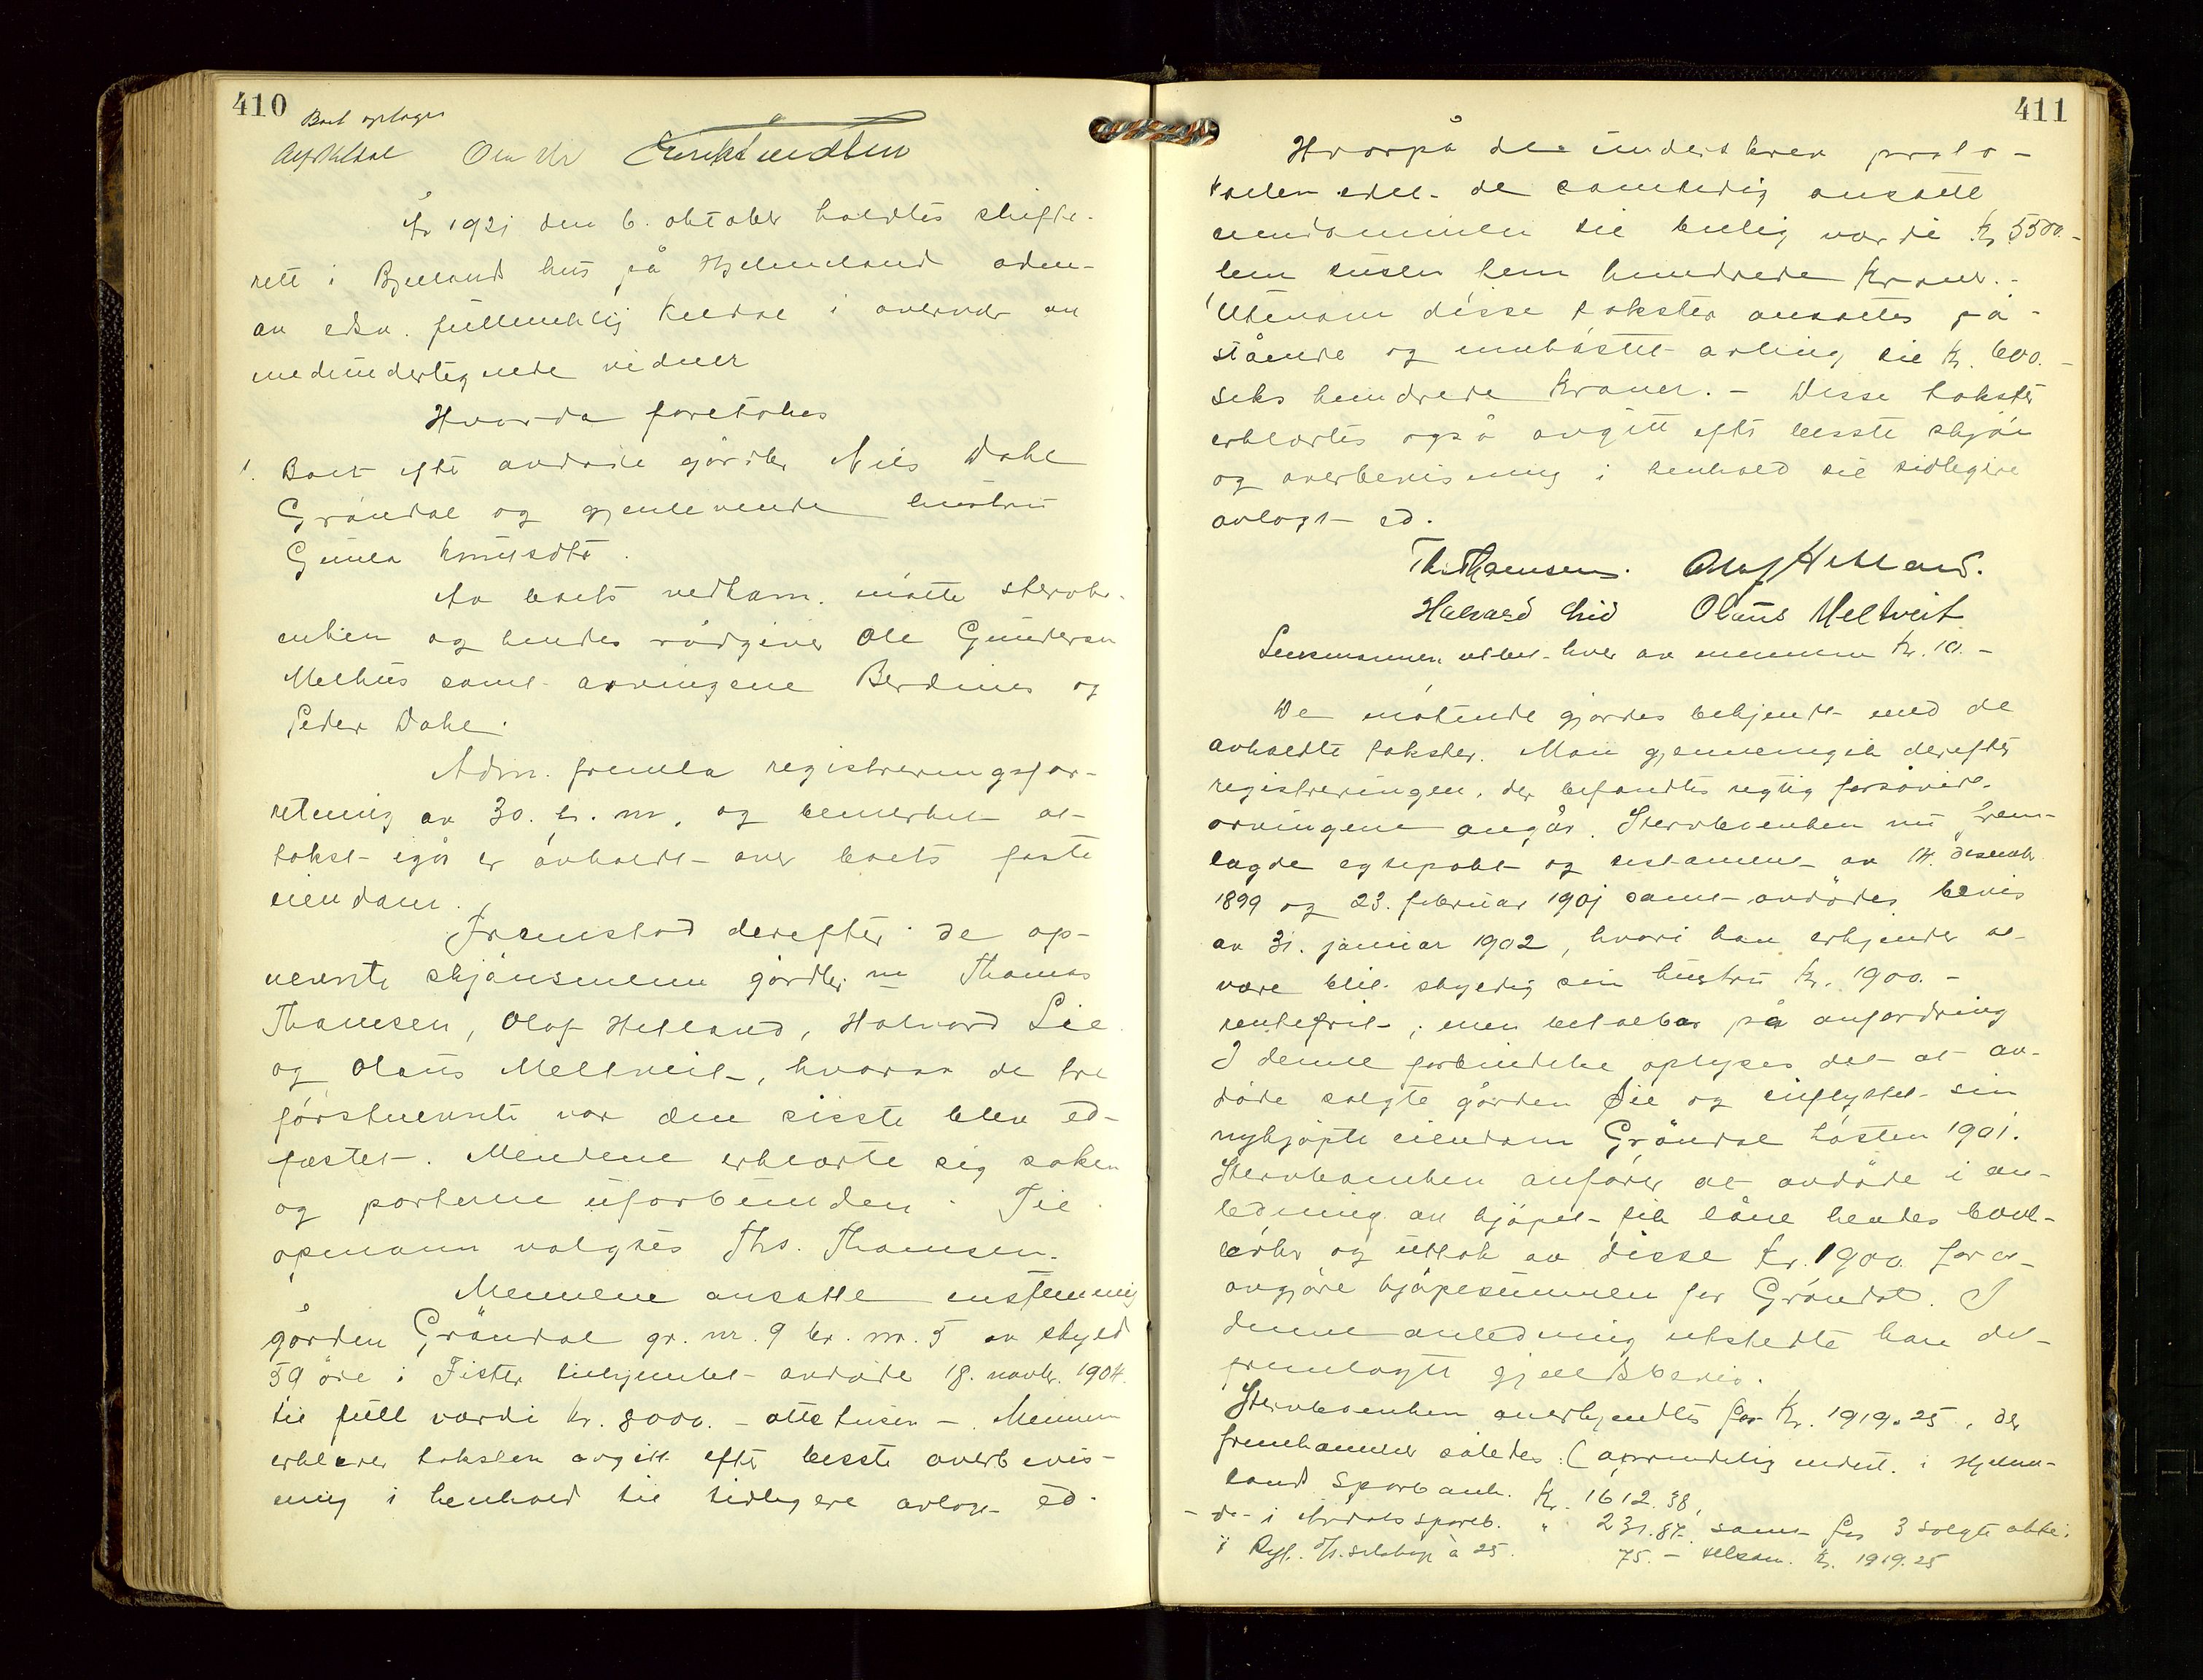 410
Boet optages
År 1921 den 6. oktober holdtes skifte-
rett i Bjelland hus på Hjelmeland adm-
av edsv. fullmektig Keldal i overvær av
medundertegnede vidner
Hvorda foretokes
1. Boet efter avdøde gårdbr Nils Dahl
Grøndal og gjenlevende hustru
Gunla Knutsdtr.
Av boets vedkom. møtte stervbo-
enken og hendes rådgiver Ole Gundersn
Melhus samt arvingene Berdines og
Peder Dahl.
Adm. fremla registreringsfor-
retning av 30. f. m. og bemerket at
takst igår er avholdt over boets faste
eiendom.
Fremstod derefter de op-
nevnte skjønsmenn gårdbr. ne Thomas
Thomsen, Olaf Helland, Halvard Lie
og Olaus Meltveit, hvorav de tre
førstnevnte var den sisste blev ed-
fæstet. Mendene erklærte sig saken
og parterne uforbunden. Til
opmann valgtes Ths. Thomsen.
Mennene ansatte enstemmig
gården Grøndal gr. nr. 9 br. nr. 5 av skyld
59 øre i Fister tinhjemlet avdøde 18. novbr. 1904.
til full værdi kr. 8000. - otte tusen - Mennene
erklærer taksten avgitt efter beste overbevis-
ning i henhold til tidligere avlagt ed.
411
Hvorpå de underskrev proto-
kollen idet de samtidig ansatte
eiendommen til billig værdi kr 5500.-
fem tusen fem hundrede kroner.-
Utenom disse takster ansattes på-
stående og innhøstet avling til kr. 600.-
seks hundrede kroner. - Disse takster
erklærtes også avgitt efter beste skjøn
og overbevisning i henhold til tidligere
avlagt ed.
Th. Thomsen. Olaf Helland.
Halvard Lie Olaus Meltveit
Lensmannen utbet. hver av mennene kr. 10.-
De møtende gjordes bekjendt med de
avholdte takster. Man gjennemgik derefter
registreringen, der befandtes rigtig forsåvidt
arvingene angår. Stervboenken nu frem-
lagde egtepakt og testament av 14. desember
1899 og 23. februar 1901 samt avdødes bevis
av 31. januar 1902, hvori han erkjender at
være blit skyldig sin hustru kr. 1900.-
rentefrit, men betalbar på anfordring
I denne forbindelse oplyses det at av-
døde solgte gården Lie og tilflyttet sin
nykjøpte eiendom Grøndal høsten 1901.
Stervboenken anfører at avdøde i an-
ledning av kjøpet fik låne hendes bank-
bøker og uttok av disse kr. 1900 for at
avgjøre kjøpesummen for Grøndal. I
denne anledning utstedte han det
fremlagte gjeldsbevis.
Stervboenken anerkjendtes for Kr. 1919.25, der
fremkommer således: (oprindelig indest. i Hjelme-
land Sparebank. Kr. 1612.38,
- do - i Årdals spareb. " 231.87 samt for 3 solgte aktier
i Ryf. D/S. selskap à 25. 75.- tilsam. kr. 1919.25